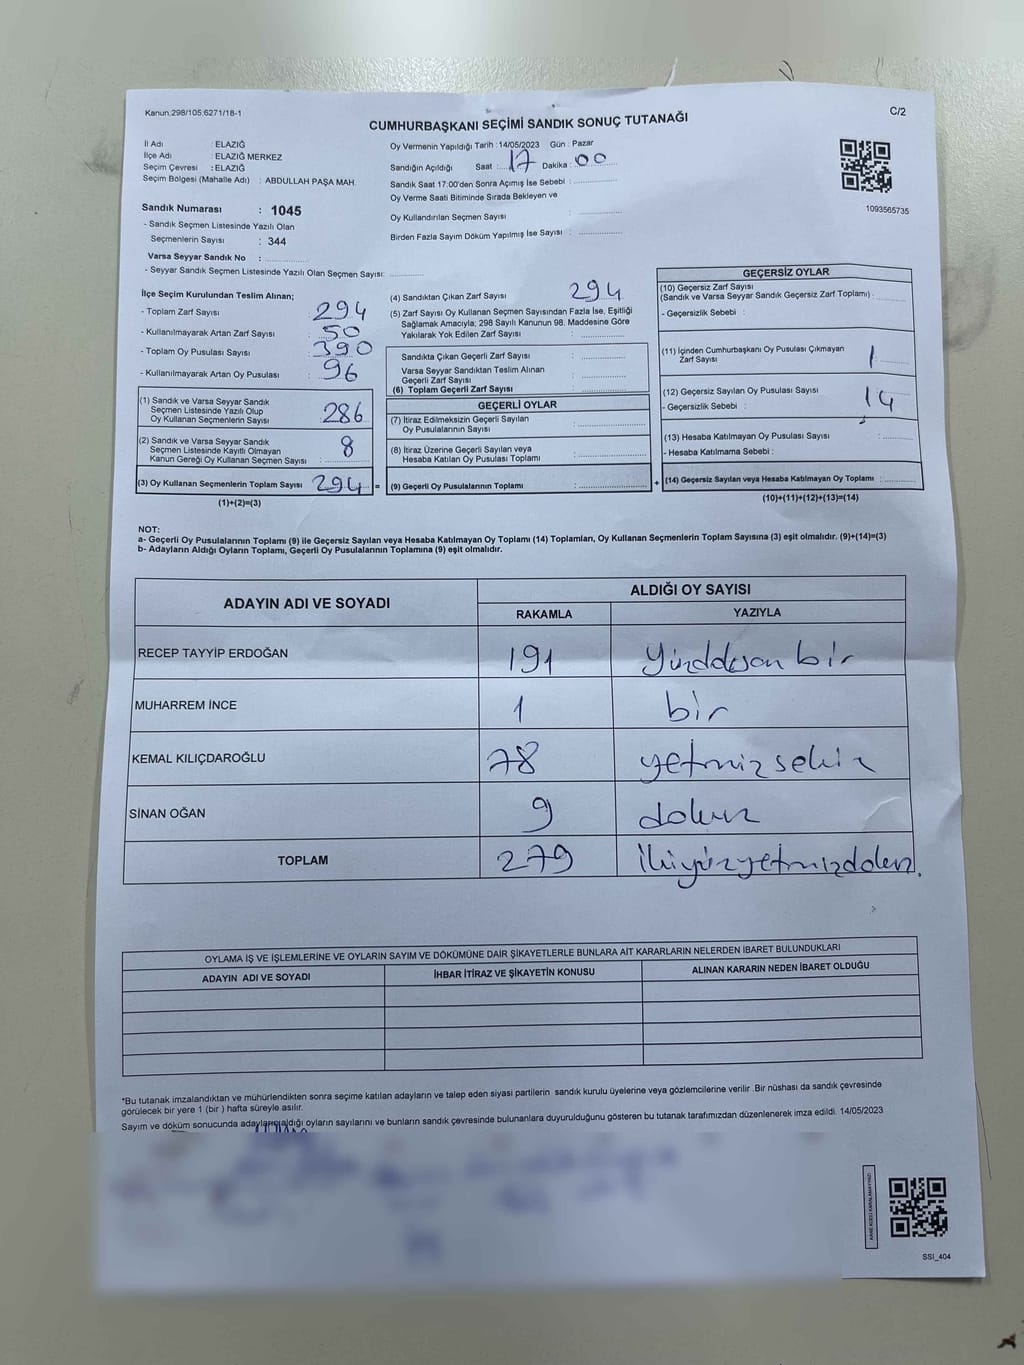 Kanun.298/105,6271/18-1
C/2
CUMHURBAŞKANI SEÇİMİ SANDIK SONUÇ TUTANAĞI
İl Adı : ELAZIĞ
İlçe Adı : ELAZIĞ MERKEZ
Seçim Çevresi : ELAZIĞ
Seçim Bölgesi (Mahalle Adı) : ABDULLAH PAŞA MAH.
Sandık Numarası : 1045
- Sandık Seçmen Listesinde Yazılı Olan
Seçmenlerin Sayısı : 344
Varsa Seyyar Sandık No :
- Seyyar Sandık Seçmen Listesinde Yazılı Olan Seçmen Sayısı:
Oy Vermenin Yapıldığı Tarih : 14/05/2023 Gün : Pazar
Sandığın Açıldığı Saat : 17 Dakika : 00
Sandık Saat 17:00'den Sonra Açımış İse Sebebi :
Oy Verme Saati Bitiminde Sırada Bekleyen ve
Oy Kullandırılan Seçmen Sayısı :
Birden Fazla Sayım Döküm Yapılmış İse Sayısı :
1093565735
İlçe Seçim Kurulundan Teslim Alınan;
- Toplam Zarf Sayısı : 294
- Kullanılmayarak Artan Zarf Sayısı : 50
- Toplam Oy Pusulası Sayısı : 390
- Kullanılmayarak Artan Oy Pusulası : 96
(1) Sandık ve Varsa Seyyar Sandık
Seçmen Listesinde Yazılı Olup
Oy Kullanan Seçmenlerin Sayısı : 286
(2) Sandık ve Varsa Seyyar Sandık
Seçmen Listesinde Kayıtlı Olmayan
Kanun Gereği Oy Kullanan Seçmen Sayısı : 8
(3) Oy Kullanan Seçmenlerin Toplam Sayısı 294 =
(1)+(2)=(3)
(4) Sandıktan Çıkan Zarf Sayısı 294
(5) Zarf Sayısı Oy Kullanan Seçmen Sayısından Fazla İse, Eşitliği
Sağlamak Amacıyla; 298 Sayılı Kanunun 98. Maddesine Göre
Yakılarak Yok Edilen Zarf Sayısı :
Sandıkta Çıkan Geçerli Zarf Sayısı :
Varsa Seyyar Sandıktan Teslim Alınan
Geçerli Zarf Sayısı :
(6) Toplam Geçerli Zarf Sayısı :
GEÇERLİ OYLAR
(7) İtiraz Edilmeksizin Geçerli Sayılan
Oy Pusulalarının Sayısı :
(8) İtiraz Üzerine Geçerli Sayılan veya
Hesaba Katılan Oy Pusulası Toplamı :
(9) Geçerli Oy Pusulalarının Toplamı : +
GEÇERSİZ OYLAR
(10) Geçersiz Zarf Sayısı
(Sandık ve Varsa Seyyar Sandık Geçersiz Zarf Toplamı) :
- Geçersizlik Sebebi :
(11) İçinden Cumhurbaşkanı Oy Pusulası Çıkmayan
Zarf Sayısı : 1
(12) Geçersiz Sayılan Oy Pusulası Sayısı : 14
- Geçersizlik Sebebi :
(13) Hesaba Katılmayan Oy Pusulası Sayısı :
- Hesaba Katılmama Sebebi :
(14) Geçersiz Sayılan veya Hesaba Katılmayan Oy Toplamı :
(10)+(11)+(12)+(13)=(14)
NOT:
a- Geçerli Oy Pusulalarının Toplamı (9) ile Geçersiz Sayılan veya Hesaba Katılmayan Oy Toplamı (14) Toplamları, Oy Kullanan Seçmenlerin Toplam Sayısına (3) eşit olmalıdır. (9)+(14)=(3)
b- Adayların Aldığı Oyların Toplamı, Geçerli Oy Pusulalarının Toplamına (9) eşit olmalıdır.
ADAYIN ADI VE SOYADI
ALDIĞI OY SAYISI
RAKAMLA YAZIYLA
RECEP TAYYİP ERDOĞAN 191 bir
MUHARREM İNCE 1 bir
KEMAL KILIÇDAROĞLU 78 yetmiz sekiz
SİNAN OĞAN 9 dokuz
TOPLAM 279
OYLAMA İŞ VE İŞLEMLERİNE VE OYLARIN SAYIM VE DÖKÜMÜNE DAİR ŞİKAYETLERLE BUNLARA AİT KARARLARIN NELERDEN İBARET BULUNDUKLARI
ADAYIN ADI VE SOYADI İHBAR İTİRAZ VE ŞİKAYETİN KONUSU ALINAN KARARIN NEDEN İBARET OLDUĞU
*Bu tutanak imzalandıktan ve mühürlendikten sonra seçime katılan adayların ve talep eden siyasi partilerin sandık kurulu üyelerine veya gözlemcilerine verilir .Bir nüshası da sandık çevresinde
görülecek bir yere 1 (bir ) hafta süreyle asılır.
Sayım ve döküm sonucunda adayların aldığı oyların sayılarını ve bunların sandık çevresinde bulunanlara duyurulduğunu gösteren bu tutanak tarafımızdan düzenlenerek imza edildi. 14/05/2023
SSI_404